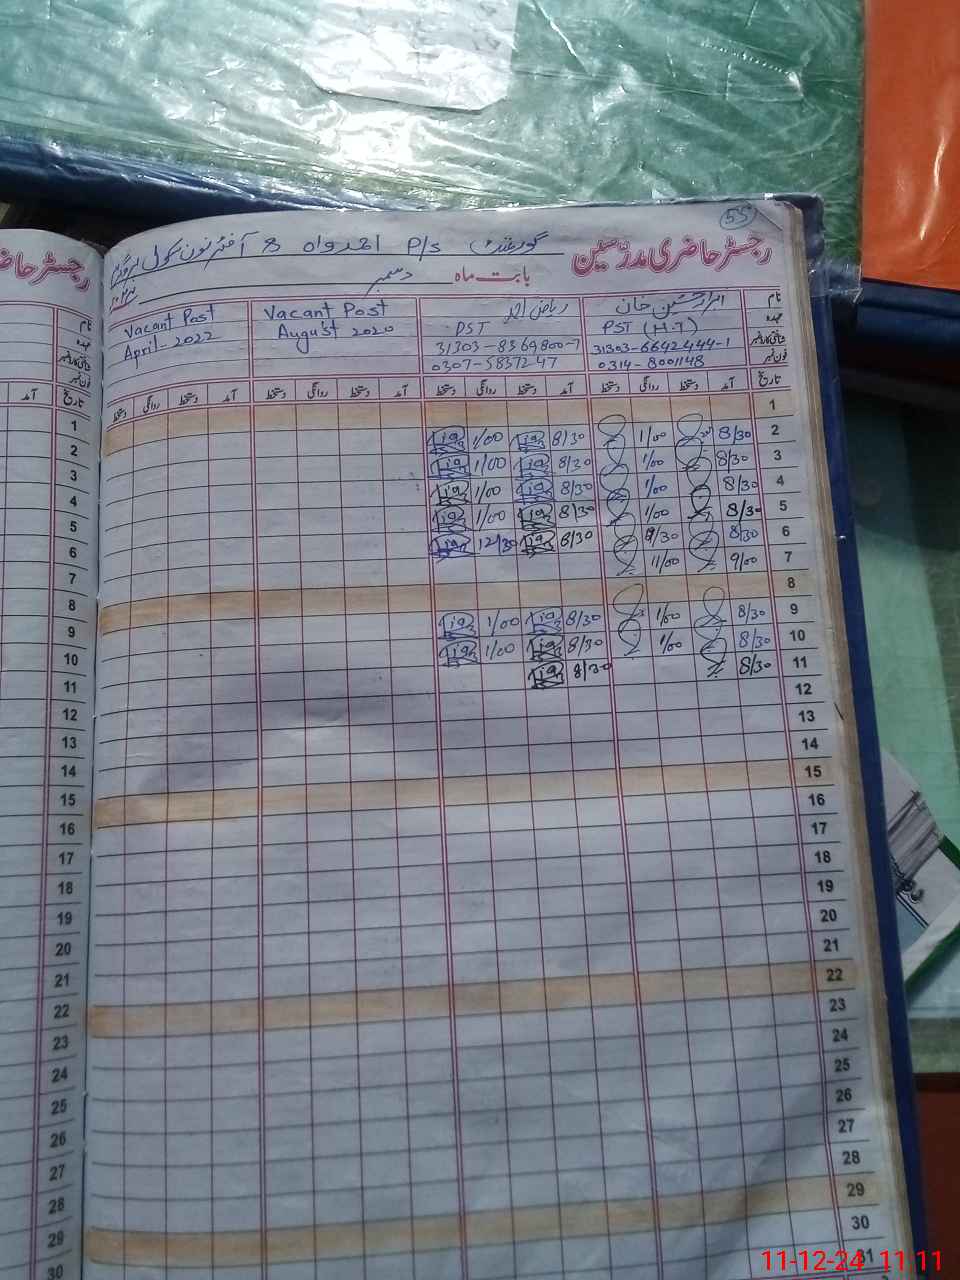 55
رجسٹر حاضری مدرسین
گورنمنٹ P/s احدواہ 8 آفٹر نون سکول
بابت ماہ دسمبر
نام
عہدہ
شناختی کارڈ نمبر
فون نمبر
ابرار حسین خان
PST (H-T)
31303-6642444-1
0314-8001148
ریاض احمد
PST
31303-8369800-7
0307-5837247
Vacant Post
August 2020
Vacant Post
April-2022
تاریخ آمد دستخط روانگی دستخط آمد دستخط روانگی دستخط آمد دستخط روانگی دستخط آمد دستخط روانگی دستخط
1
2 8/30 1/00 8/30 1/00
3 8/30 1/00 8/30 1/00
4 8/30 1/00 8/30 1/00
5 8/30 1/00 8/30 1/00
6 8/30 8/30 12/30
7 9/00 11/00
8
9 8/30 1/00 8/30 1/00
10 8/30 1/00 8/30 1/00
11 8/30 8/30
12
13
14
15
16
17
18
19
20
21
22
23
24
25
26
27
28
29
30
31
رجسٹر حاضری
نام
عہدہ
شناختی کارڈ نمبر
فون نمبر
تاریخ آمد
1
2
3
4
5
6
7
8
9
10
11
12
13
14
15
16
17
18
19
20
21
22
23
24
25
26
27
28
29
30
11-12-24 11 11